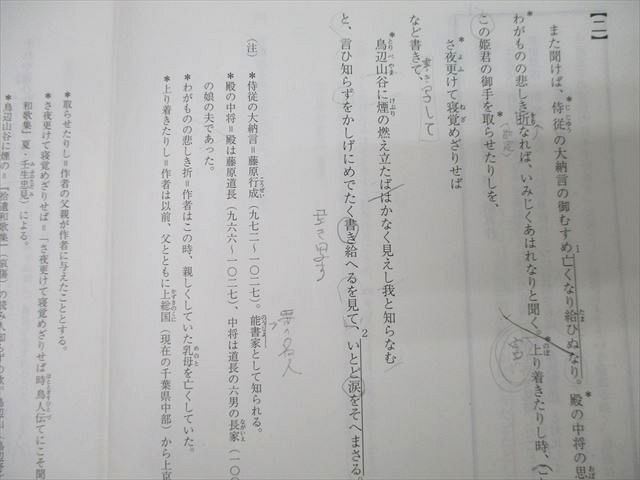 【二】
また聞けば、侍従の大納言の御むすめ亡くなり給ひぬなり。殿の中将の思
わがものの悲しき折なれば、いみじくあはれなりと聞く。上り着きたりし時、
この姫君の御手を取らせたりしを、
さ夜更けて寝覚めざりせば
など書きて、
鳥辺山谷に煙の燃え立たばはかなく見えし我と知らなむ
と、言ひ知らずをかしげにめでたく書き給へるを見て、いとど涙をそへまさる。
(注)
*侍従の大納言=藤原行成(九七二~一〇二七)。能書家として知られる。
*殿の中将=殿は藤原道長(九六六~一〇二七)、中将は道長の六男の長家(一〇〇
の娘の夫であった。
*わがものの悲しき折=作者はこの時、親しくしていた乳母を亡くしていた。
*上り着きたりし=作者は以前、父とともに上総国(現在の千葉県中部)から上京
*取らせたりし=作者の父親が作者に与えたこととする。
*さ夜更けて寝覚めざりせば=「さ夜更けて寝覚めざりせば時鳥人伝てにこそ聞
和歌集』夏・壬生忠見)による。
*鳥辺山谷に煙の=『拾遺和歌集』(哀傷)の読み人知らずの歌